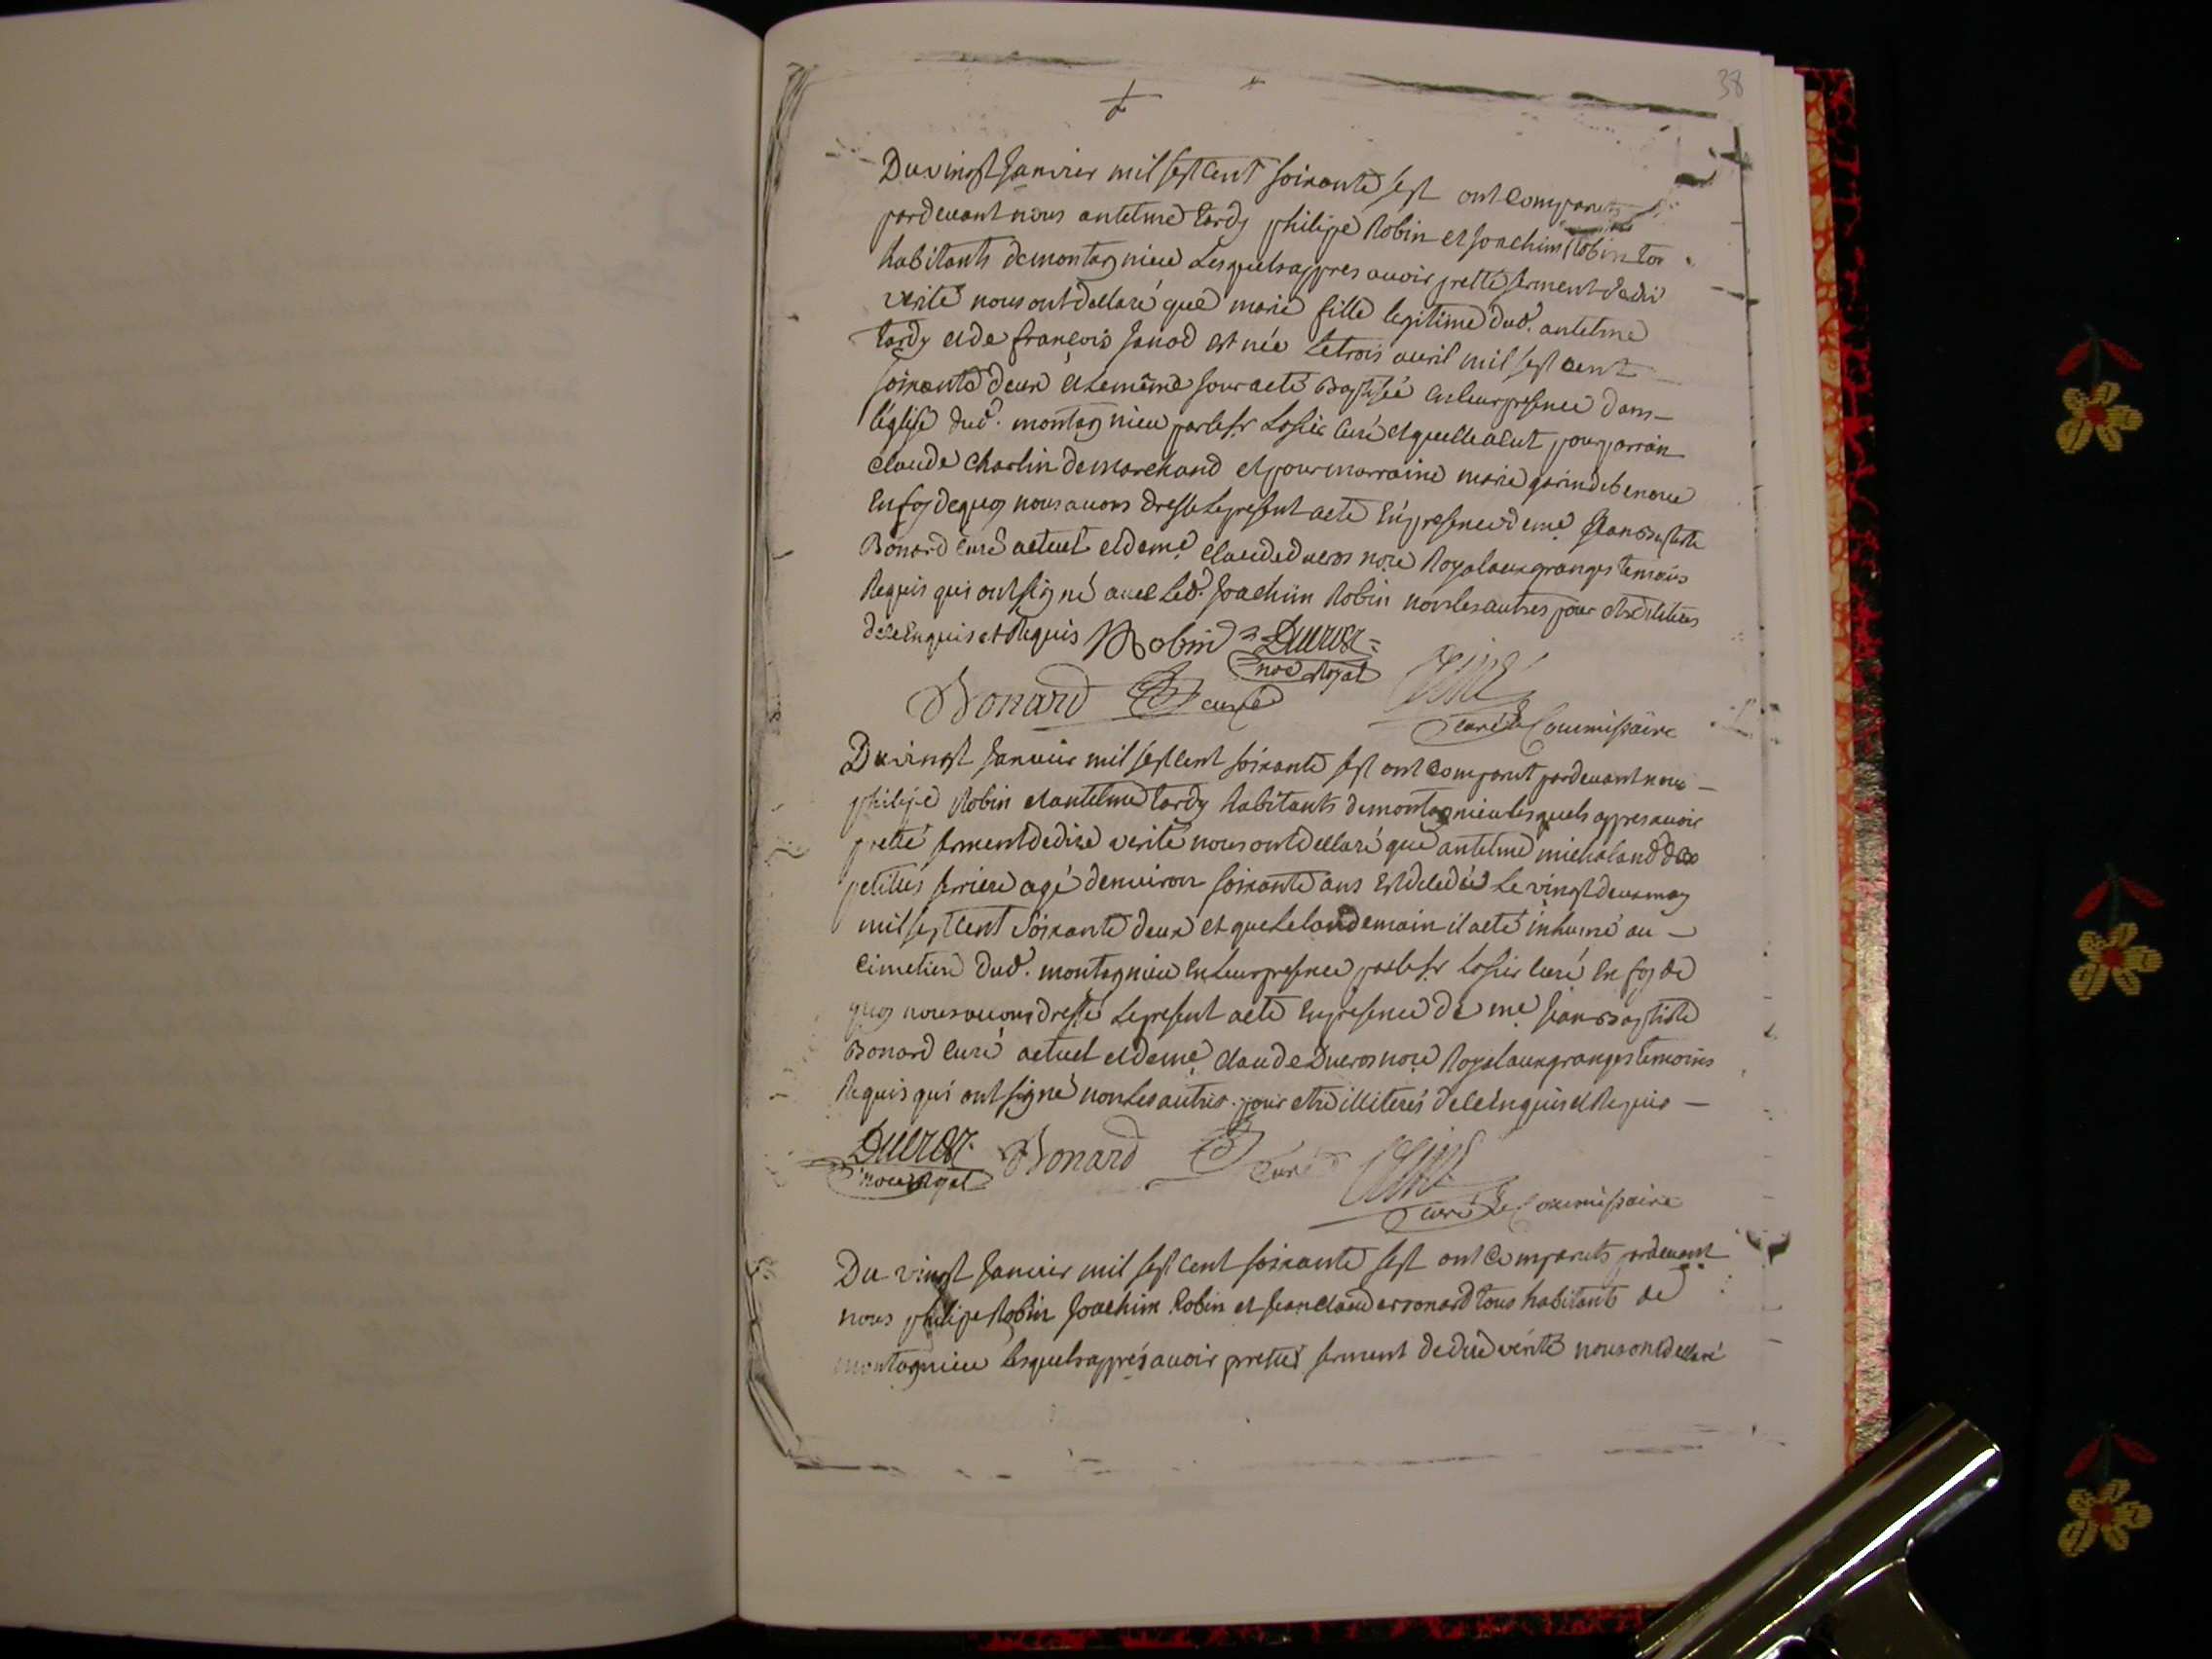 38
Du vingt Janvier mil sept Cent soixante sept ont Comparuts
pardevant nous antelme tardy philipe Robin et Joachim Robin tou
habitants de montagnieu Lesquels appres avoir pretté serment de dir
verité nous ont dellaré que marie fille legitime dud. antelme
tardy et de françois Janod est née Le trois avril mil sept cent
soixante deux et Le même jour a eté Baptisée en leur presence dans
l'église dud. montagnieu par le Sr curé et quelle a eut pour parrain
Claude Charlin de marchand et pour marraine marie garin
En foy de quoy nous avons dressé Le present acte En presence de me Jean Baptiste
Bonard Curé actuel et de me Claude Ducros nore Royal aux granges temoins
Requis qui ont signé avec Led. Joachim Robin non les autres pour etre
de ce Enquis et Requis Robin Ducros
noe Royal
Bonard curé
curé Commissaire
Du vingt Janvier mil sept Cent soixante sept ont Comparut pardevant nous
philipe Robin et antelme tardy habitants de montagnieu lesquels appres avoir
pretté serment de dire verité nous ont dellaré que antelme michaland
agé denviron soixante ans Est decedé Le vingt deux may
mil sept Cent Soixante deux et que Le landemain il a eté inhumé au
Cimetiere dud. montagnieu En Leur presence par le Sr curé En foy de
quoy nous avons dressé Le present acte En presence de me Jean Baptiste
Bonard Curé actuel et de me Claude Ducros nore Royal aux granges temoins
Requis qui ont signé non Les autres pour etre illiterés de ce Enquis et Requis
Ducros Bonard Curé
nore Royal
curé Commissaire
Du vingt Janvier mil sept Cent soixante sept ont Comparuts pardevant
nous philipe Robin Joachim Robin et Jean Claude Bonard tous habitants de
montagnieu Lesquels apprés avoir prettés serment de dire vérité nous ont dellaré